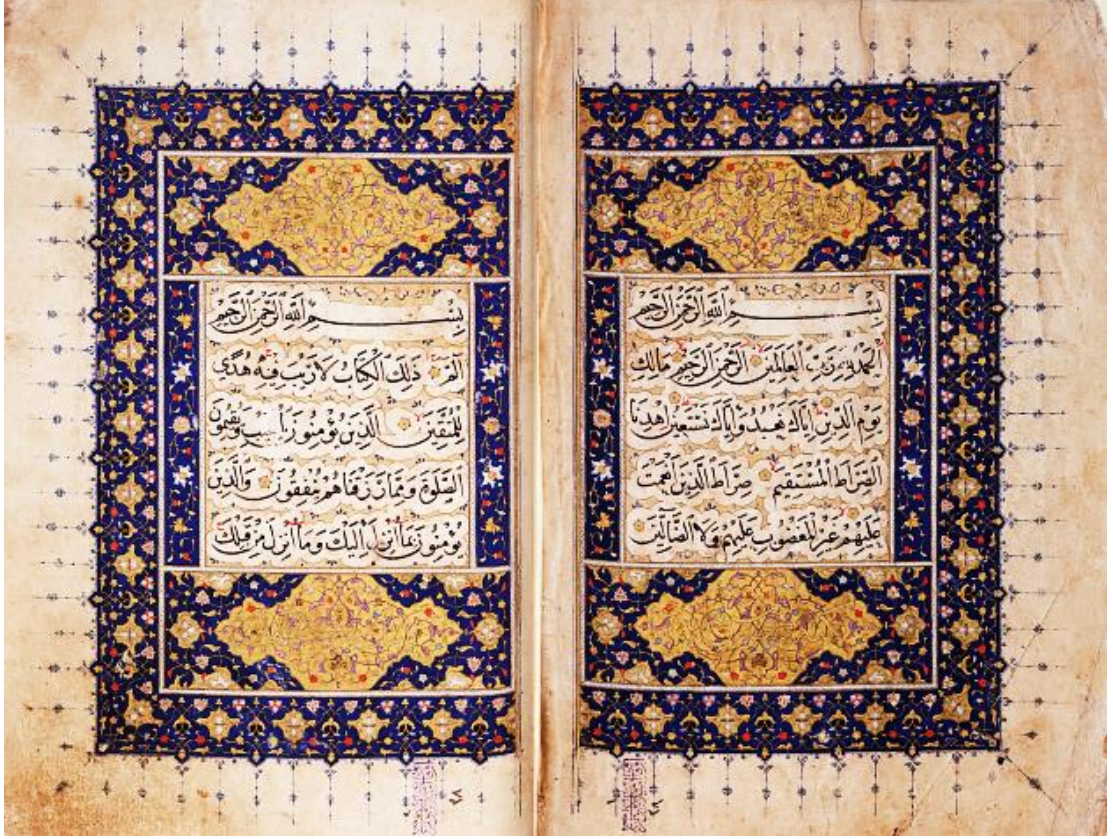 بِسْمِ اللَّهِ الرَّحْمٰنِ الرَّحِيمِ
الْحَمْدُ لِلَّهِ رَبِّ الْعَالَمِينَ الرَّحْمٰنِ الرَّحِيمِ مَالِكِ
يَوْمِ الدِّينِ إِيَّاكَ نَعْبُدُ وَإِيَّاكَ نَسْتَعِينُ اهْدِنَا
الصِّرَاطَ الْمُسْتَقِيمَ صِرَاطَ الَّذِينَ أَنْعَمْتَ
عَلَيْهِمْ غَيْرِ الْمَغْضُوبِ عَلَيْهِمْ وَلَا الضَّالِّينَ
بِسْمِ اللَّهِ الرَّحْمٰنِ الرَّحِيمِ
الٓمٓ ذٰلِكَ الْكِتَابُ لَا رَيْبَ فِيهِ هُدًى
لِلْمُتَّقِينَ الَّذِينَ يُؤْمِنُونَ بِالْغَيْبِ وَيُقِيمُونَ
الصَّلٰوةَ وَمِمَّا رَزَقْنَاهُمْ يُنْفِقُونَ وَالَّذِينَ
يُؤْمِنُونَ بِمَا أُنْزِلَ إِلَيْكَ وَمَا أُنْزِلَ مِنْ قَبْلِكَ